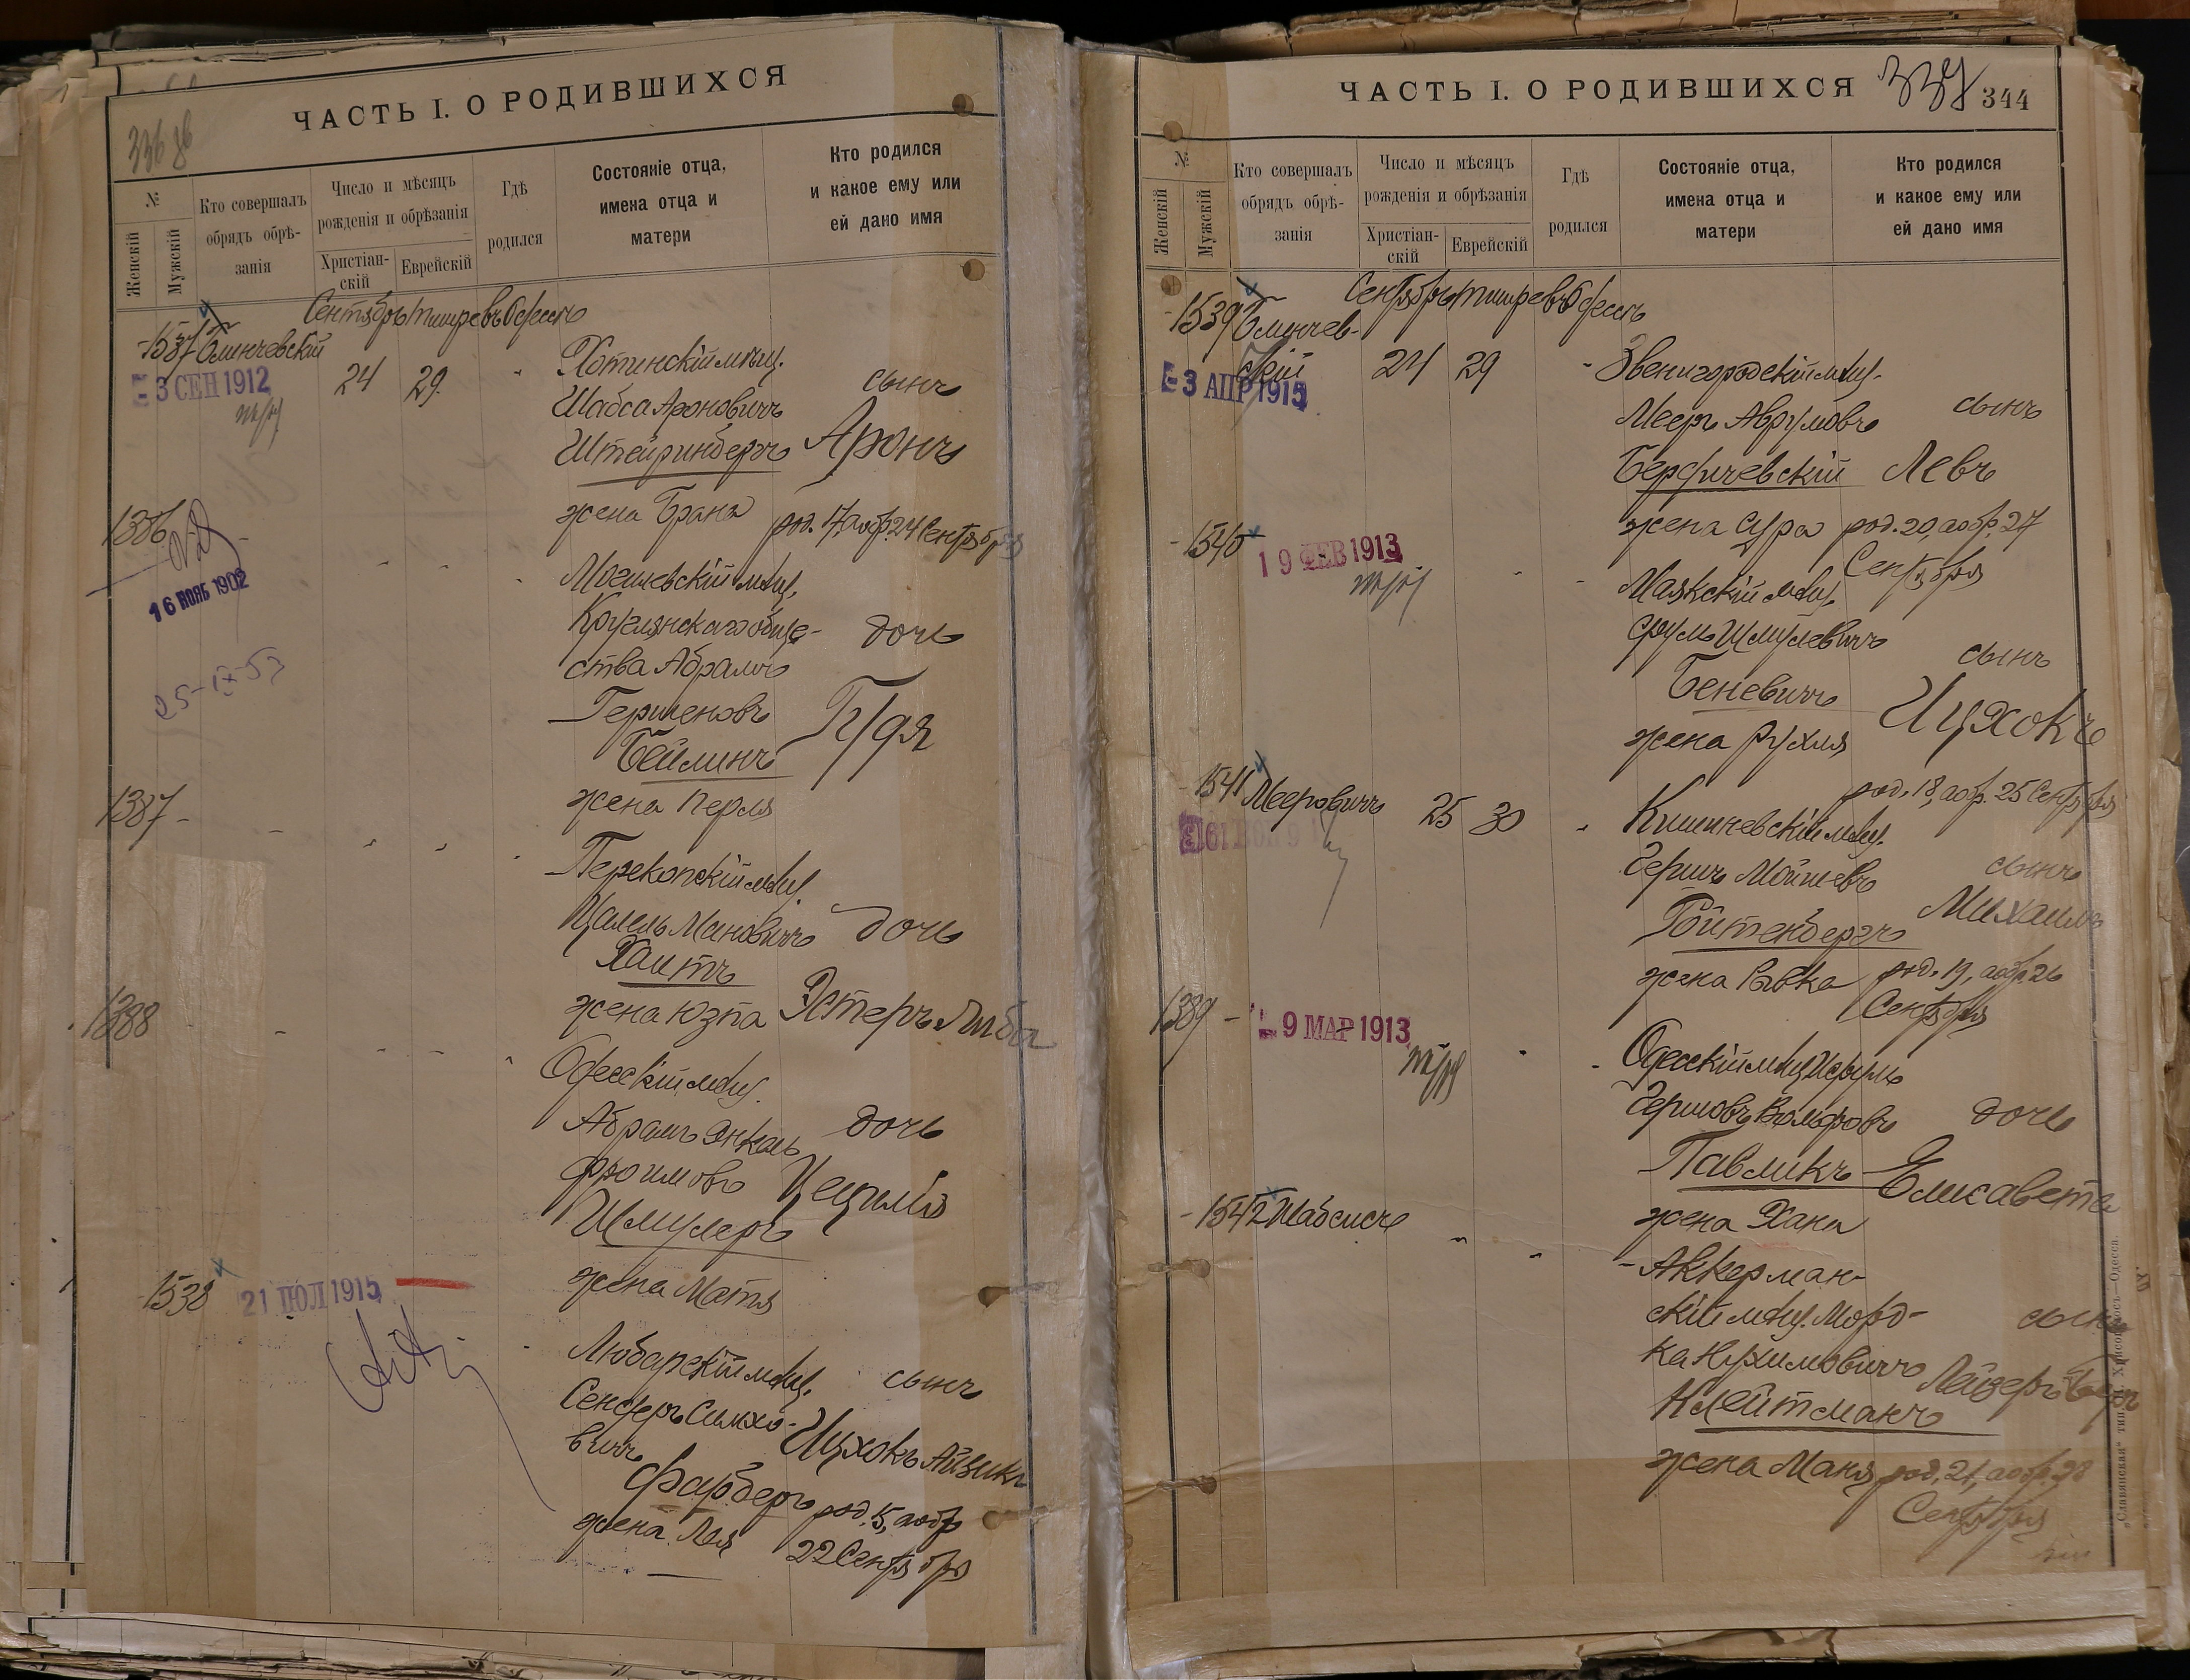 ЧАСТЬ I. О РОДИВШИХСЯ
№
Женскій
Мужскій
Кто совершалъ
обрядъ обрѣ-
занія
Число и мѣсяцъ
рожденія и обрѣзанія
Христіан-
скій
Еврейскій
Гдѣ
родился
Состояніе отца,
имена отца и
матери
Кто родился
и какое ему или
ей дано имя
Сентябрь тишре въ Одессѣ
1537 Блинчевскій
3 СЕН 1912
24 29
Хотинскій мѣщ.
Шабса Ароновичъ
Штейринбергъ
жена Брана
сынъ
Аронъ
род. 17, а обр. 24 Сентября
1386
16 НОЯБ 1902
25-IX-53
Могилевскій мѣщ.
Круглянскаго обще-
ства Абрамъ
Гершеновъ
Бейлинъ
жена Перля
дочь
1387
Перекопскій мѣщ.
Цалель Мановичъ
Хаитъ
жена Юзпа
дочь
Эстеръ Либа
1388
Одесскій мѣщ.
Абрамъ Янкель
Фроимовъ
Шмулеръ
жена Матя
дочь
Цецилія
1538
21 ІЮЛ 1915
Любарскій мѣщ.
Сендеръ Симхо-
вичъ
Фарберъ
жена Лея
сынъ
Ицхокъ Айзикъ
род. 15, а обр
22 Сентября
ЧАСТЬ I. О РОДИВШИХСЯ
344
№
Женскій
Мужскій
Кто совершалъ
обрядъ обрѣ-
занія
Число и мѣсяцъ
рожденія и обрѣзанія
Христіан-
скій
Еврейскій
Гдѣ
родился
Состояніе отца,
имена отца и
матери
Кто родился
и какое ему или
ей дано имя
Сентябрь тишре въ Одессѣ
1539 Блинчев-
скій
3 АПР 1915
24 29
Звенигородскій мѣщ.
Мееръ Аврумовъ
Бердичевскій
жена Сура
сынъ
Левъ
род. 20, а обр. 27
Сентября
1540
19 ФЕВ 1913
Маякскій мѣщ.
Срулъ Шмулевичъ
Беневичъ
жена Рухля
сынъ
Ицхокъ
род. 18, а обр. 25 Сентября
1541 Мееровичъ
25 30
Кишиневскій мѣщ.
Гершъ Мойшевъ
Ройтенбергъ
жена Ривка
сынъ
Михаилъ
род. 19, а обр. 26
Сентября
1389
9 МАР 1913
Одесскій мѣщ. Исруль
Гершовъ Вольфовъ
Павликъ
жена Хана
дочь
Елисавета
1542 Шабсисъ
Аккерман-
скій мѣщ. Морд-
ка Нухимовичъ
Клейтманъ
жена Маня
сынъ
Лейзеръ Беръ
род. 21, а обр. 28
Сентября